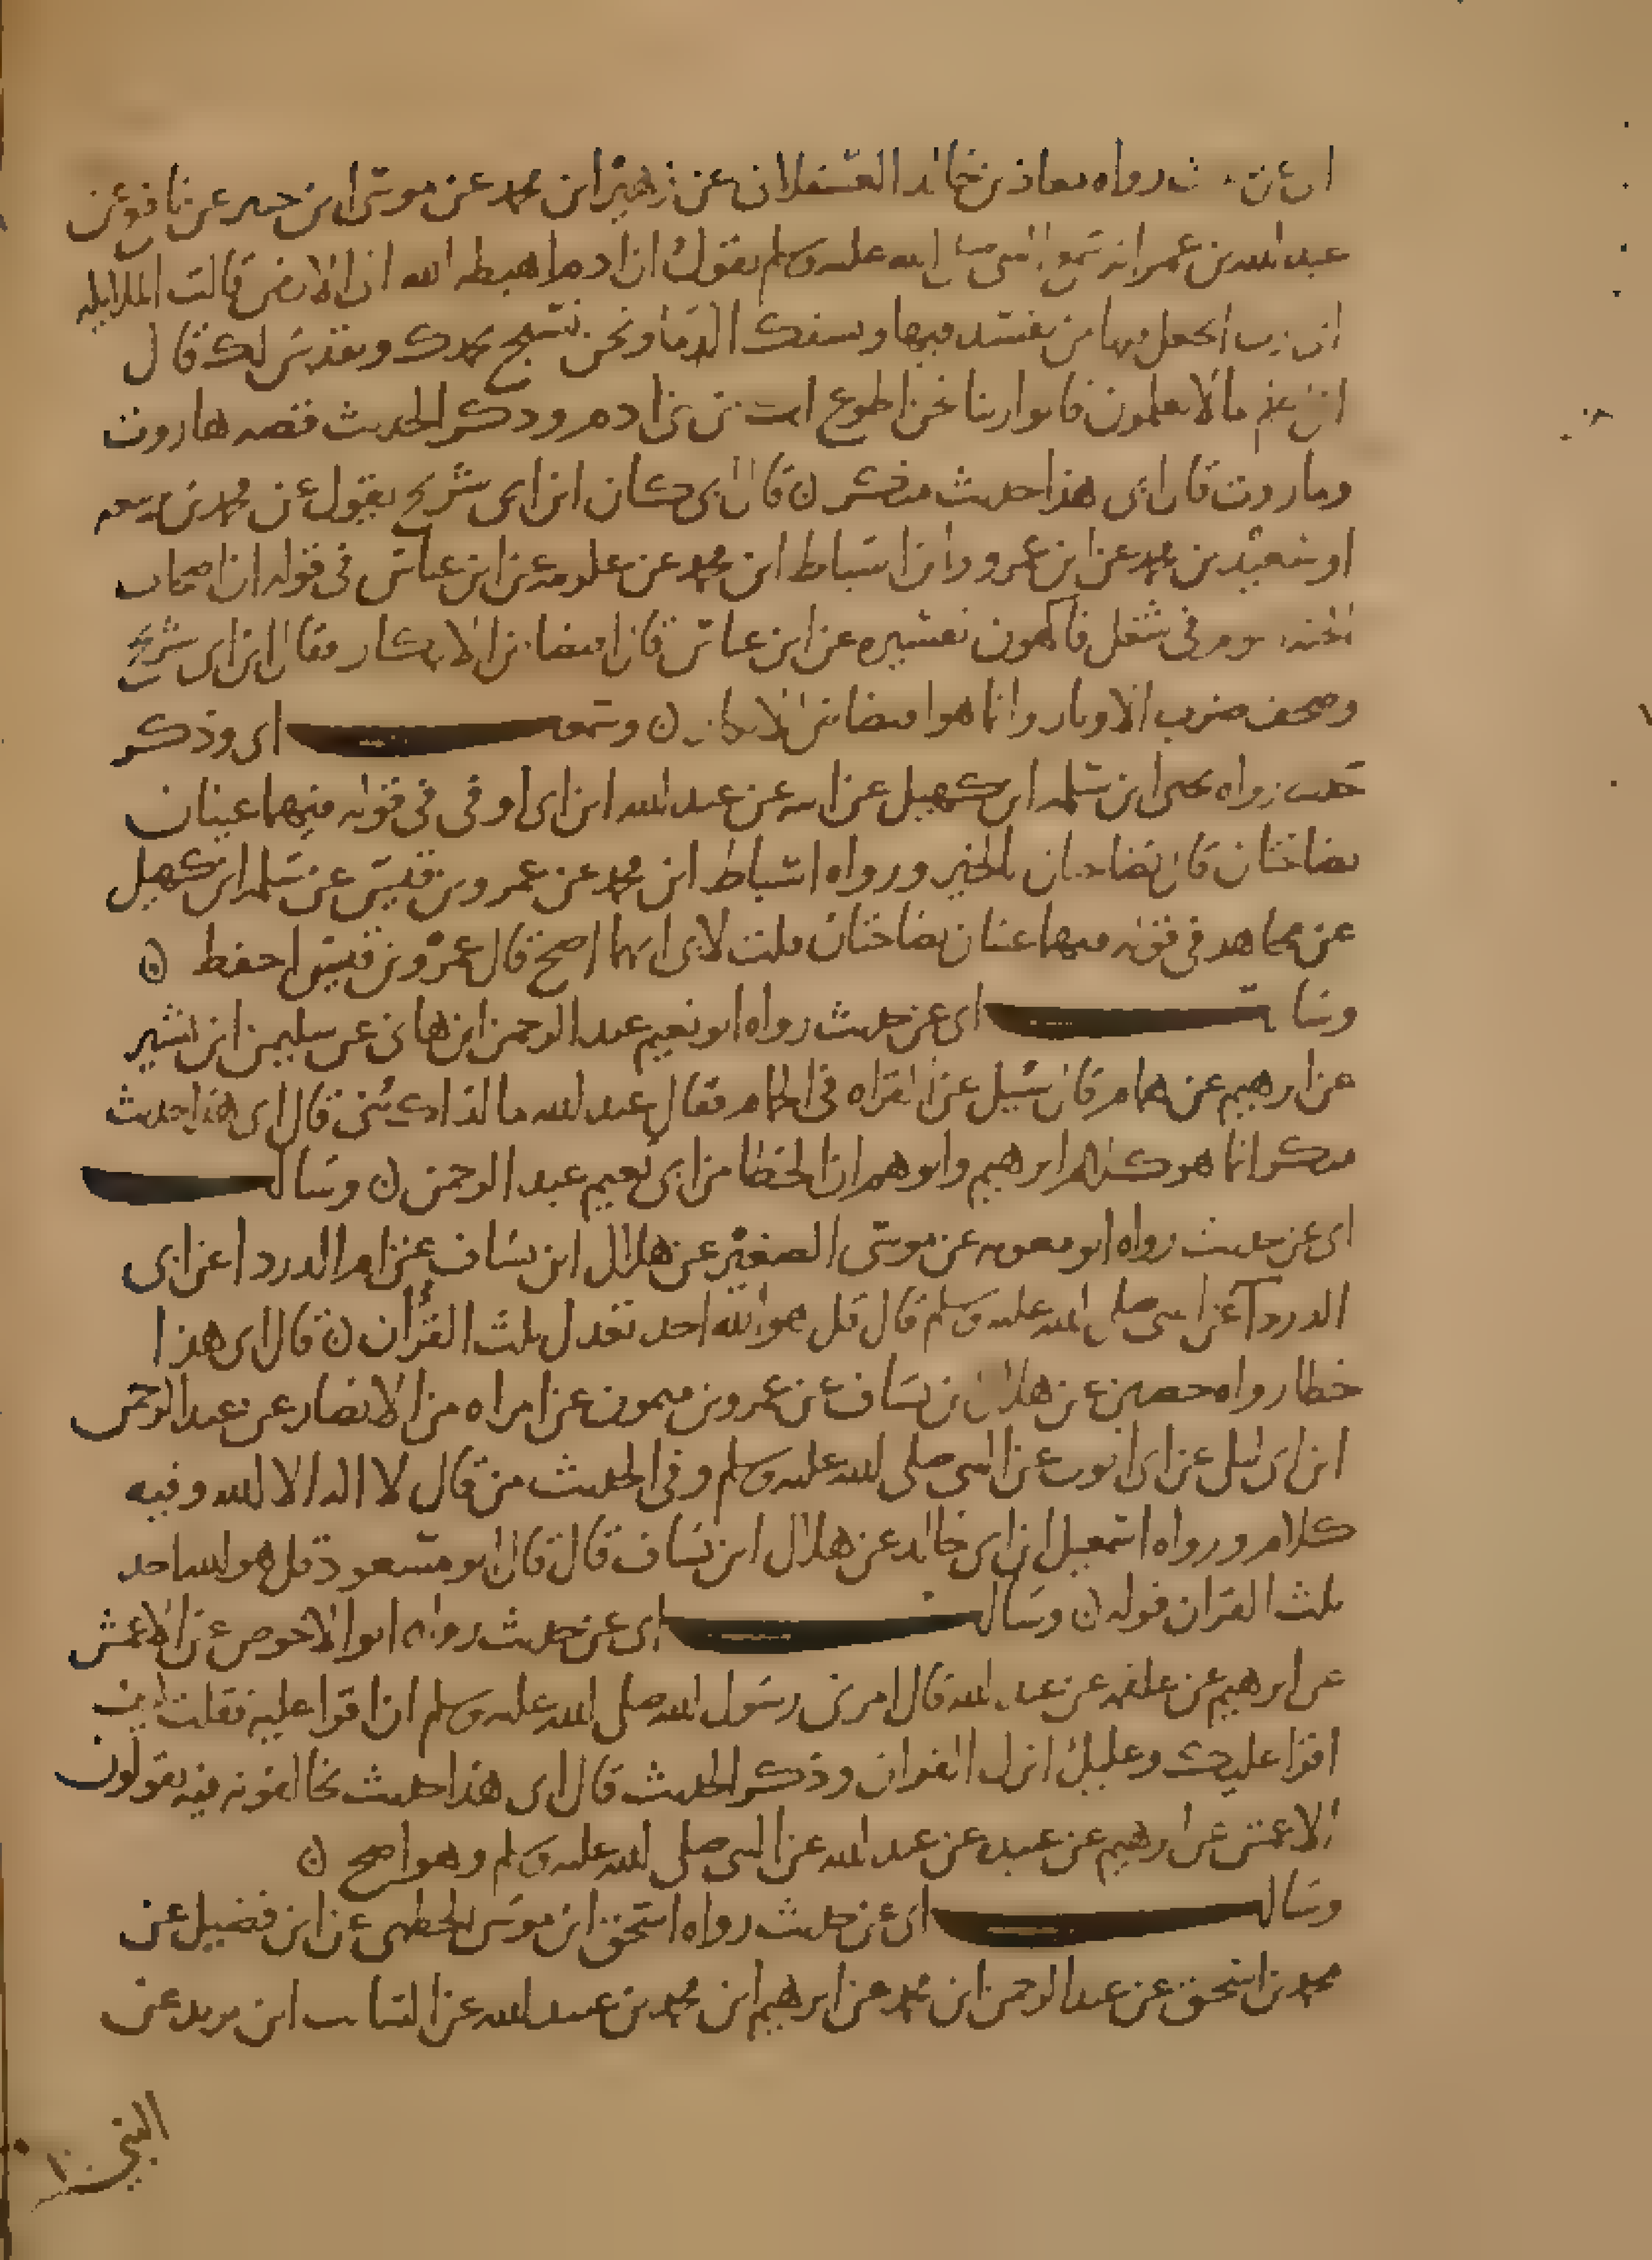 ابي عن حديث رواه معاذ بن خالد العسقلاني عن زهير ابن محمد عن موسى ابن جبير عن نافع عن
عبد الله بن عمر انه سمع النبي صلى الله عليه وسلم يقول ان ادم اهبطه الله الى الارض قالت الملايكه
اي رب اتجعل فيها من يفسد فيها ويسفك الدما ونحن نسبح بحمدك ونقدس لك قال
اني اعلم ما لا تعلمون قالوا ربنا نحن اطوع لك من بني ادم وذكر الحديث قصه هاروت
وماروت قال ابي هذا حديث منكر ن قال ابي كان ابن ابي سريج يقول عن محمد بن
او سعيد بن محمد عن ابن عمرو وابن اسباط ابن محمد عن عكرمه عن ابن عباس في قوله ان اصحاب
الجنه اليوم في شغل فاكهون تفسيره عن ابن عباس قال افتضاض الابكار فقال ابن ابي سريج
وصحف ضرب الاوتار وانما هو افتضاض الابكار ن وسمعت ابي وذكر
حديث رواه يحيى ابن سلمه ابن كهيل عن ابيه عن عبد الله ابن ابي اوفى في قوله فيهما عينان
نضاختان قال نضاختان بالخير ورواه اسباط ابن محمد عن عمرو بن قيس عن سلمه ابن كهيل
عن مجاهد في قوله فيهما عينان نضاختان قلت لابي ايهما اصح قال عمرو بن قيس احفظ ن
وسالت ابي عن حديث رواه ابو نعيم عبد الرحمن ابن هاني عن سليمن ابن نشير
عن ابرهيم عن همام قال سيل عن القراه في الحمام فقال عبد الله ما لذاك بني قال ابي هذا حديث
منكر انما هو كلام ابرهيم واتوهم ان الخطا من ابي نعيم عبد الرحمن ن وسالت
ابي عن حديث رواه ابو معويه عن موسى الصغير عن هلال ابن يساف عن ام الدرداء عن ابي
الدرداء عن النبي صلى الله عليه وسلم قال قل هو الله احد تعدل بثلث القرآن ن قال ابي هذا
خطا رواه حصين عن هلال بن يساف عن عمرو بن ميمون عن امراه من الانصار عن عبد الرحمن
ابن ابي ليلى عن ابي ايوب عن النبي صلى الله عليه وسلم وفي الحديث من قال لا اله الا الله وفيه
كلام ورواه اسمعيل ابن ابي خالد عن هلال ابن يساف قال قال ابو مسعود قل هو الله احد
ثلث القران قوله ن وسالت ابي عن حديث رواه ابو الاحوص عن الاعمش
عن ابرهيم عن علقمه عن عبد الله قال امرني رسول الله صلى الله عليه وسلم ان اقرا عليه فقلت كيف
اقرا عليك وعليك انزل القران وذكر الحديث قال ابي هذا حديث يخالفونه فيه يقولون
الاعمش عن ابرهيم عن عبيده عن عبد الله عن النبي صلى الله عليه وسلم وهو اصح ن
وسالت ابي عن حديث رواه اسحق ابن موسى الخطمي عن ابن فضيل عن
محمد بن اسحق عن عبد الرحمن ابن محمد عن ابرهيم ابن محمد بن عبد الله عن السايب ابن يزيد عن
النبي